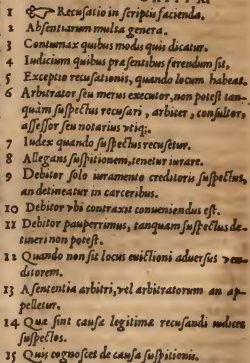 1 ☞ Recusatio in scriptis facienda.
2 Absentiarum multa genera.
3 Contumax quibus modis quis dicatur.
4 Iudicium quibus præsentibus ferendum sit.
5 Exceptio recusationis, quando locum habeat.
6 Arbitrator seu merus executor, non potest tan-
quàm suspectus recusari, arbiter, consultor,
assessor seu notarius vtiq;.
7 Iudex quando suspectus recusetur.
8 Allegans suspitionem, tenetur iurare.
9 Debitor solo iuramento creditoris suspectus,
an detineatur in carceribus.
10 Debitor vbi contraxit conueniendus est.
11 Debitor pauperrimus, tanquam suspectus de-
tineri non potest.
12 Quando non sit locus euictioni aduersus ven-
ditorem.
13 A sententia arbitri, vel arbitratorum an ap-
pelletur.
14 Quæ sint causæ legitimæ recusandi iudices
suspectos.
15 Quis cognoscet de causa suspitionis.